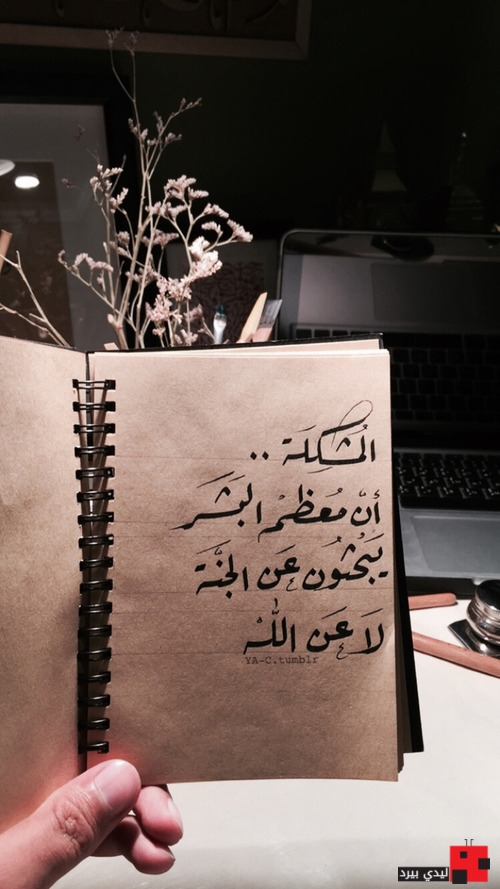 المُشكلَة ..
أنّ مُعظمْ البَشَر
يَبْحثُون عَن الجنَّة
لَا عَن اللّٰه
YA-C.tumblr
ليدي بيرد